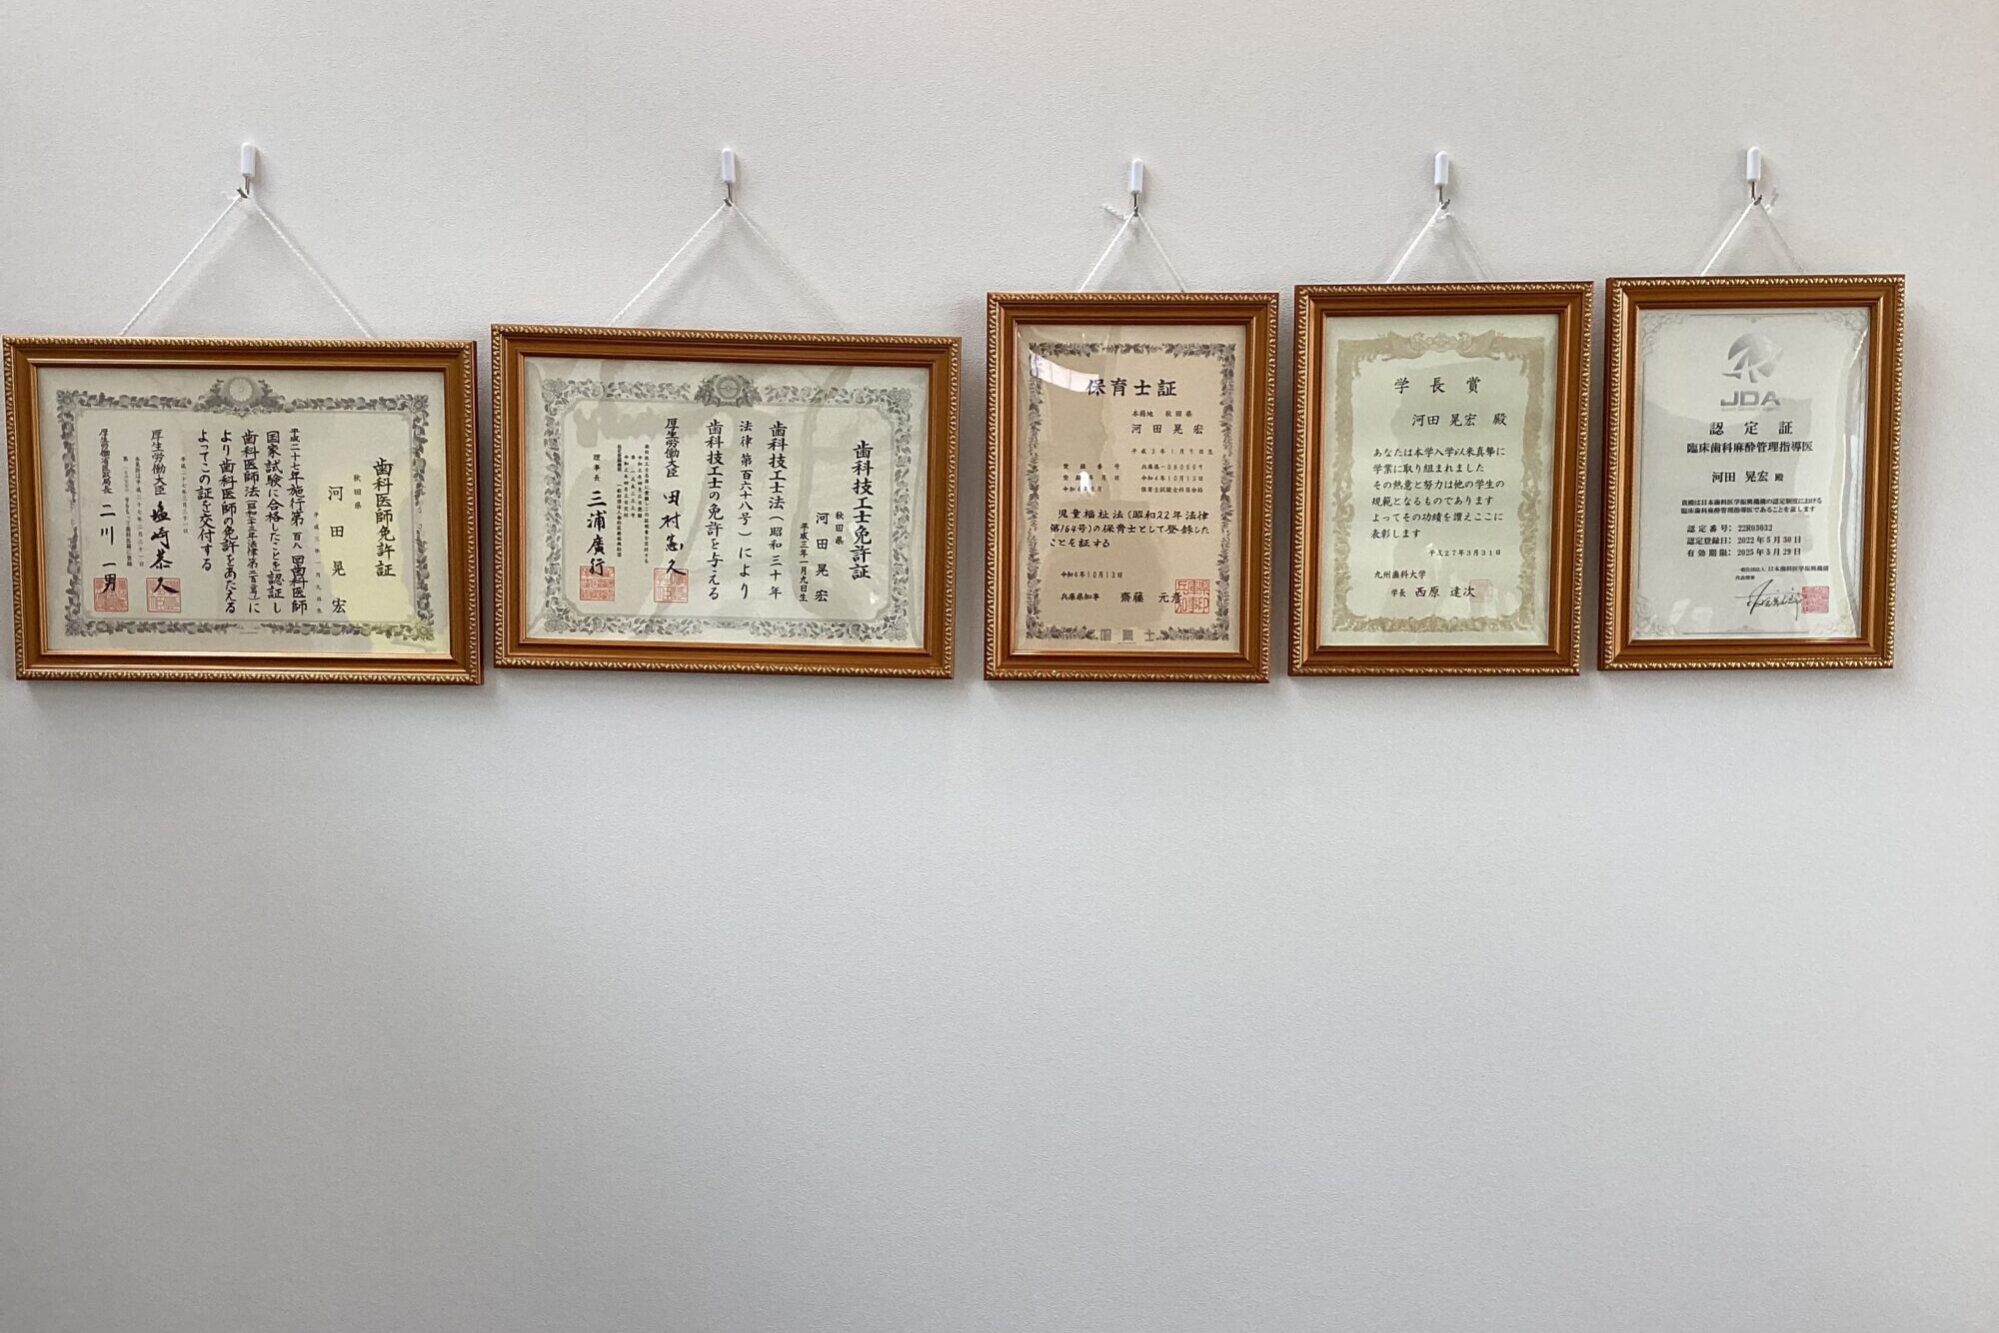 歯科医師免許証
秋田県
河田晃宏
平成二十七年施行第百八回歯科医師
国家試験に合格したことを認証し
歯科医師法(昭和二十三年法律第二百二号)に
より歯科医師の免許をあたえる
よってこの証を交付する
厚生労働大臣 塩崎恭久
厚生労働省医政局長 二川一男
歯科技工士免許証
秋田県
河田晃宏
平成三年一月九日生
歯科技工士法(昭和三十年
法律第百六十八号)により
歯科技工士の免許を与える
厚生労働大臣 田村憲久
理事長 三浦廣行
保育士証
本籍地 秋田県
河田晃宏
平成3年1月9日生
登録番号
令和4年10月13日
児童福祉法(昭和22年法律
第164号)の保育士として登録した
ことを証する
令和4年10月13日
兵庫県知事 齋藤 元彦
学長賞
河田晃宏 殿
あなたは本学入学以来真摯に
学業に取り組まれました
その熱意と努力は他の学生の
規範となるものであります
よってその功績を讃えここに
表彰します
平成27年3月31日
九州歯科大学
学長 西原 達次
JDA
認定証
臨床歯科麻酔管理指導医
河田 晃宏 殿
貴殿は日本歯科医学振興機構の認定制度における
臨床歯科麻酔管理指導医であることを証します
認定番号: 22R03032
認定登録日: 2022年5月30日
有効期限: 2025年5月29日
一般社団法人 日本歯科医学振興機構
代表理事